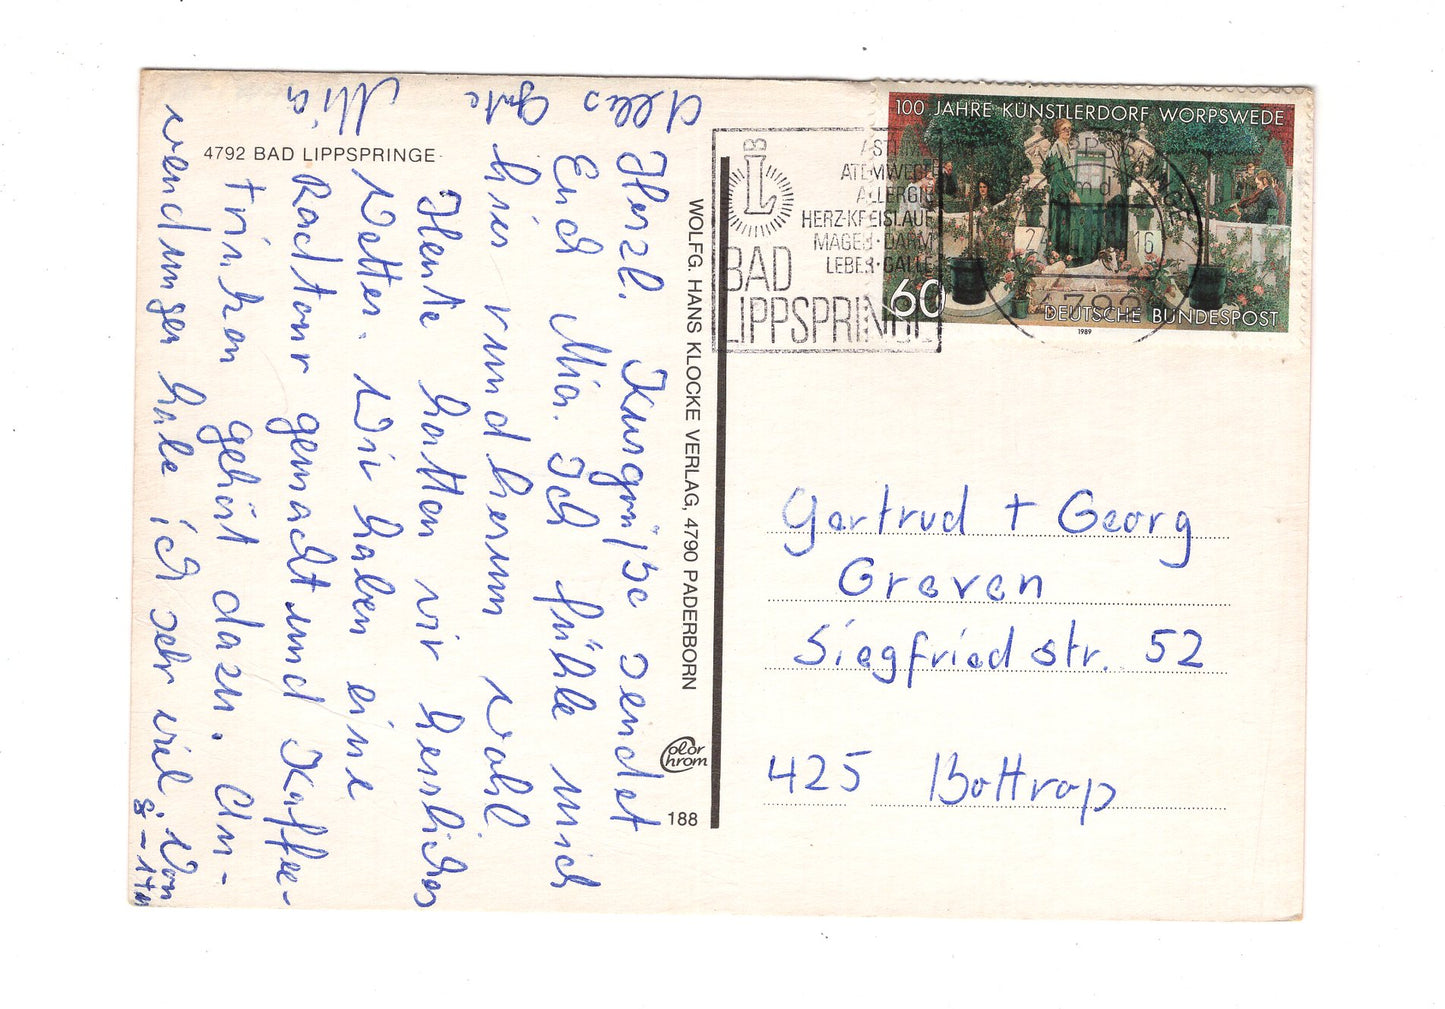 4792 BAD LIPPSPRINGE
Herzl. Kurgrüße sendet
Euch Mia. Ich fühle mich
hier rundherum wohl.
Heute hatten wir herrliches
Wetter. Wir haben eine
Radtour gemacht und Kaffee-
trinken gehört dazu. An-
wendungen habe ich sehr viel. Von
8 - 17
Alles Gute
Mia
WOLFG. HANS KLOCKE VERLAG, 4790 PADERBORN
Color
Chrom
188
100 JAHRE KÜNSTLERDORF WORPSWEDE
60
DEUTSCHE BUNDESPOST
1989
LB
ASTHMA
ATEMWEGE
ALLERGIE
HERZ·KREISLAUF
MAGEN·DARM
LEBER·GALLE
BAD
LIPPSPRINGE
4792
16
Gertrud + Georg
Greven
Siegfriedstr. 52
425 Bottrop